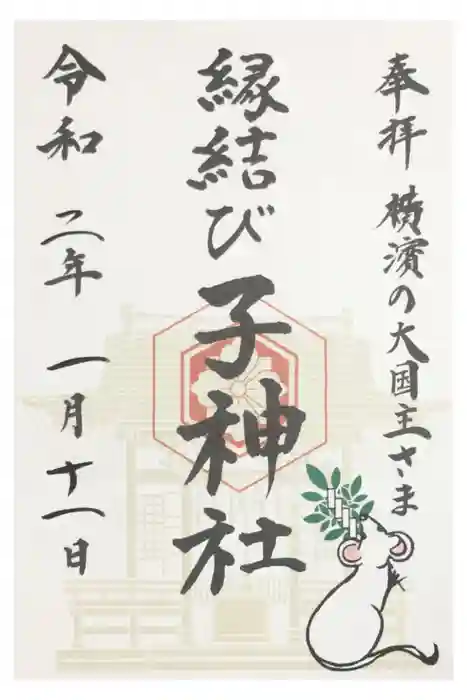 奉拝 横濱の大国主さま
縁結び子神社
令和 二年 一月 十一日